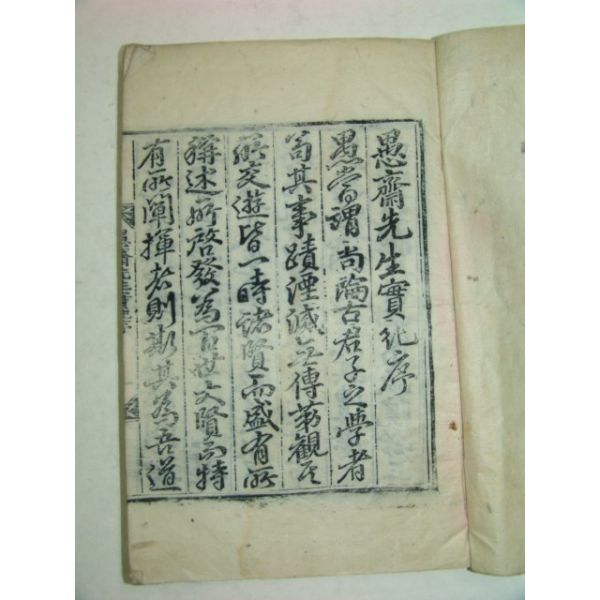 愚齋先生實紀序
愚嘗謂尚論古君子之學者
苟其事蹟湮滅無傳第觀其
所交遊皆一時諸賢而盛有所
稱述所啓發爲百世大賢而特
有所闡揮者則斯其爲吾道